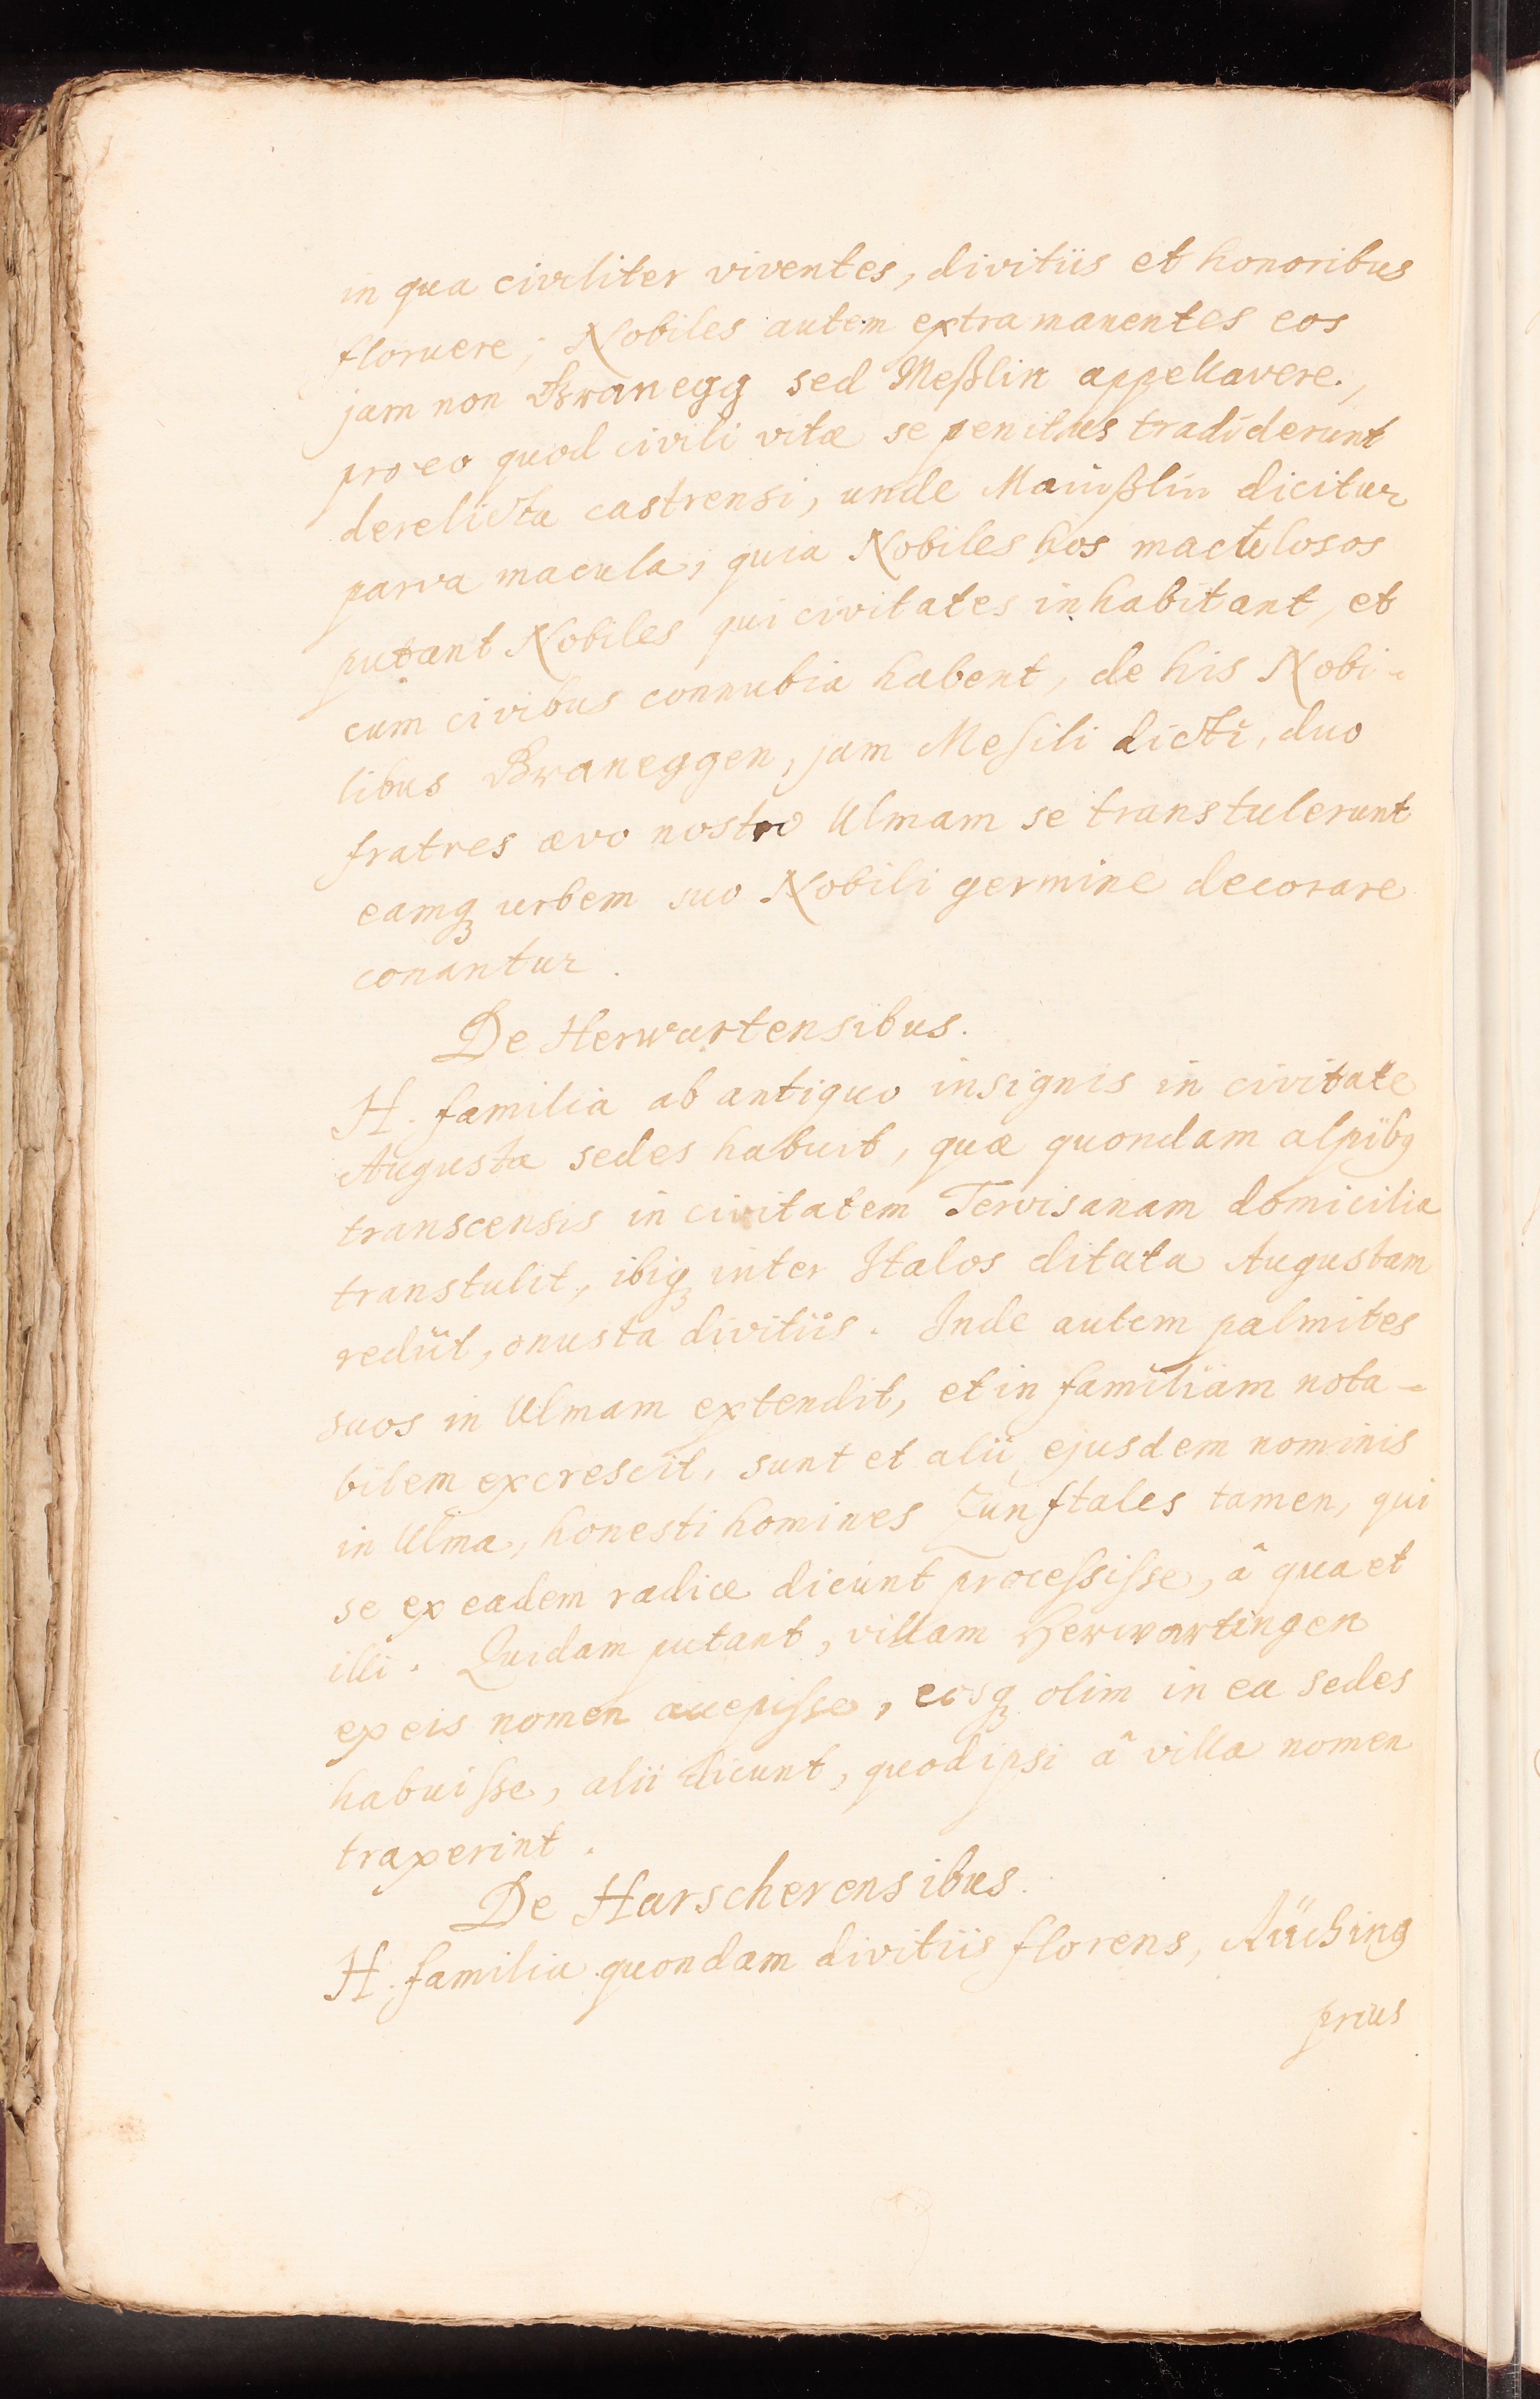 in qua civiliter viventes, divitiis et honoribus
floruere; Nobiles autem extra manentes eos
jam non Branegg sed Meßlin appellavere,
pro eo quod civili vitæ se penitus tradiderunt
derelicta castrensi, unde Mainßlin dicitur
parva macula, quia Nobiles hos maculosos
putant Nobiles qui civitates inhabitant, et
cum civibus connubia habent, de his Nobi-
libus Braneggen, jam Mesili dicti, duo
fratres ævo nostro Ulmam se transtulerunt
eamqꝫ urbem suo Nobili germine decorare
conantur.
De Herwartensibus.
H. familia ab antiquo insignis in civitate
Augusta sedes habuit, quæ quondam alpibꝫ
transcensis in civitatem Tervisanam domicilia
transtulit, ibiqꝫ inter Italos ditata Augustam
rediit, onusta divitiis. Inde autem palmites
suos in Ulmam extendit, et in familiam nota-
bilem excrescit, sunt et alii ejusdem nominis
in Ulma, honesti homines Zunftales tamen, qui
se ex eadem radice dicunt processisse, â qua et
illi. Quidam putant, villam Herwartingen
ex eis nomen accepisse, eosqꝫ olim in ea sedes
habuisse, alii dicunt, quod ipsi â villa nomen
traxerint.
De Harscherensibus.
H. familia quondam divitiis florens,
prius